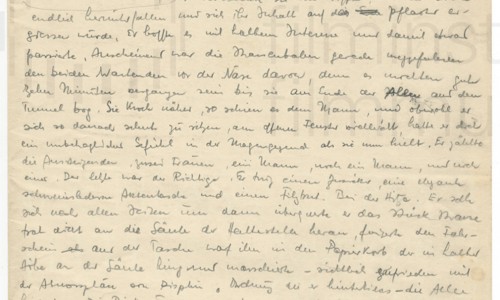 endlich herunterfallen und sich ihr Inhalt auf das Pflaster er-
giessen würde. Er hoffte es mit halbem Interesse nur damit etwas
passierte. Anscheinend war die Strassenbahn gerade
den beiden Wartenden vor der Nase davon, denn es mochten gute
zehn Minuten vergangen sein bis sie am Ende der Allee aus dem
Tunnel bog. Sie kroch näher, so schien es dem Mann, und obwohl er
sich so danach sehnte zu sitzen, am offenen Fenster vielleicht, hatte er doch
ein unbehagliches Gefühl in der Magengegend als sie nun hielt. Er zählte
die Aussteigenden, zwei Frauen, ein Mann, noch ein Mann, und noch
einer. Der letzte war der Richtige. Er trug einen, eine elegante
schweinslederne Aktentasche und einen Filzhut. Bei der Hitze. Er sah
sich nach allen Seiten um dann überquerte er das Stück Strasse
trat dicht an die Säule der Haltestelle heran, den Fahr-
schein aus der Tasche warf ihn in den Papierkorb der in halber
Höhe an der Säule hing und marschierte - sichtlich zufrieden mit
der Atmosphäre von Disziplin u. Ordnung die er hinterliess - die Allee